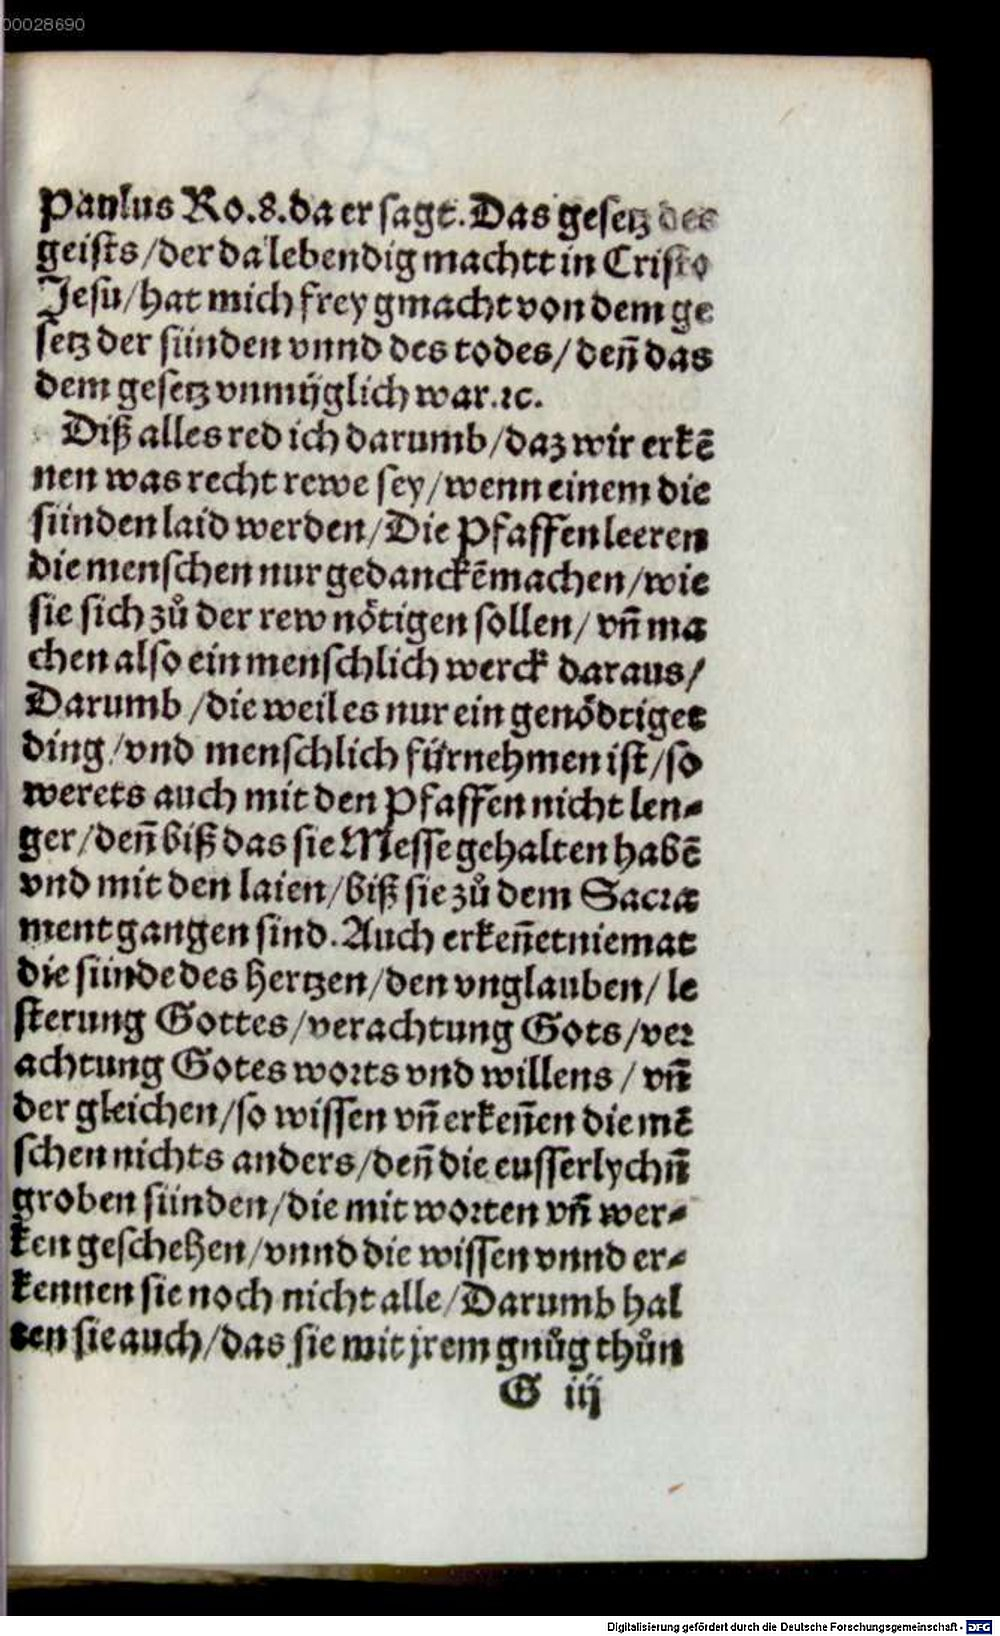 00028690
Paulus Ro.8.da er sagt.Das gesetz des
geists/der da lebendig machtt in Cristo
Jesu/hat mich frey gmacht von dem ge
setz der sünden vnnd des todes/ deñ das
dem gesetz vnmüglich war.ꝛc.
Diß alles red ich darumb/daz wir erkē
nen was recht rewe sey/wenn einem die
sünden laid werden/Die Pfaffen leeren
die menschen nur gedanckē machen/wie
sie sich zů der rew nötigen sollen/ vñ ma
chen also ein menschlich werck daraus/
Darumb /die weil es nur ein genödtiget
ding/vnd menschlich fürnehmen ist/so
werets auch mit den Pfaffen nicht len⸗
ger/deñ biß das sie Messe gehalten habē
vnd mit den laien/biß sie zů dem Sacra
ment gangen sind.Auch erkeñet niemat
die sünde des hertzen/den vnglauben/ le
sterung Gottes/verachtung Gots/ver
achtung Gotes worts vnd willens / vñ
der gleichen/so wissen vñ erkeñen die mē
schen nichts anders/deñ die eusserlychñ
groben sünden/die mit worten vñ wer⸗
ken geschehen/vnnd die wissen vnnd er⸗
kennen sie noch nicht alle/Darumb hal
ten sie auch/das sie mit jrem gnůg thůn
G iij
Digitalisierung gefördert durch die Deutsche Forschungsgemeinschaft - DFG